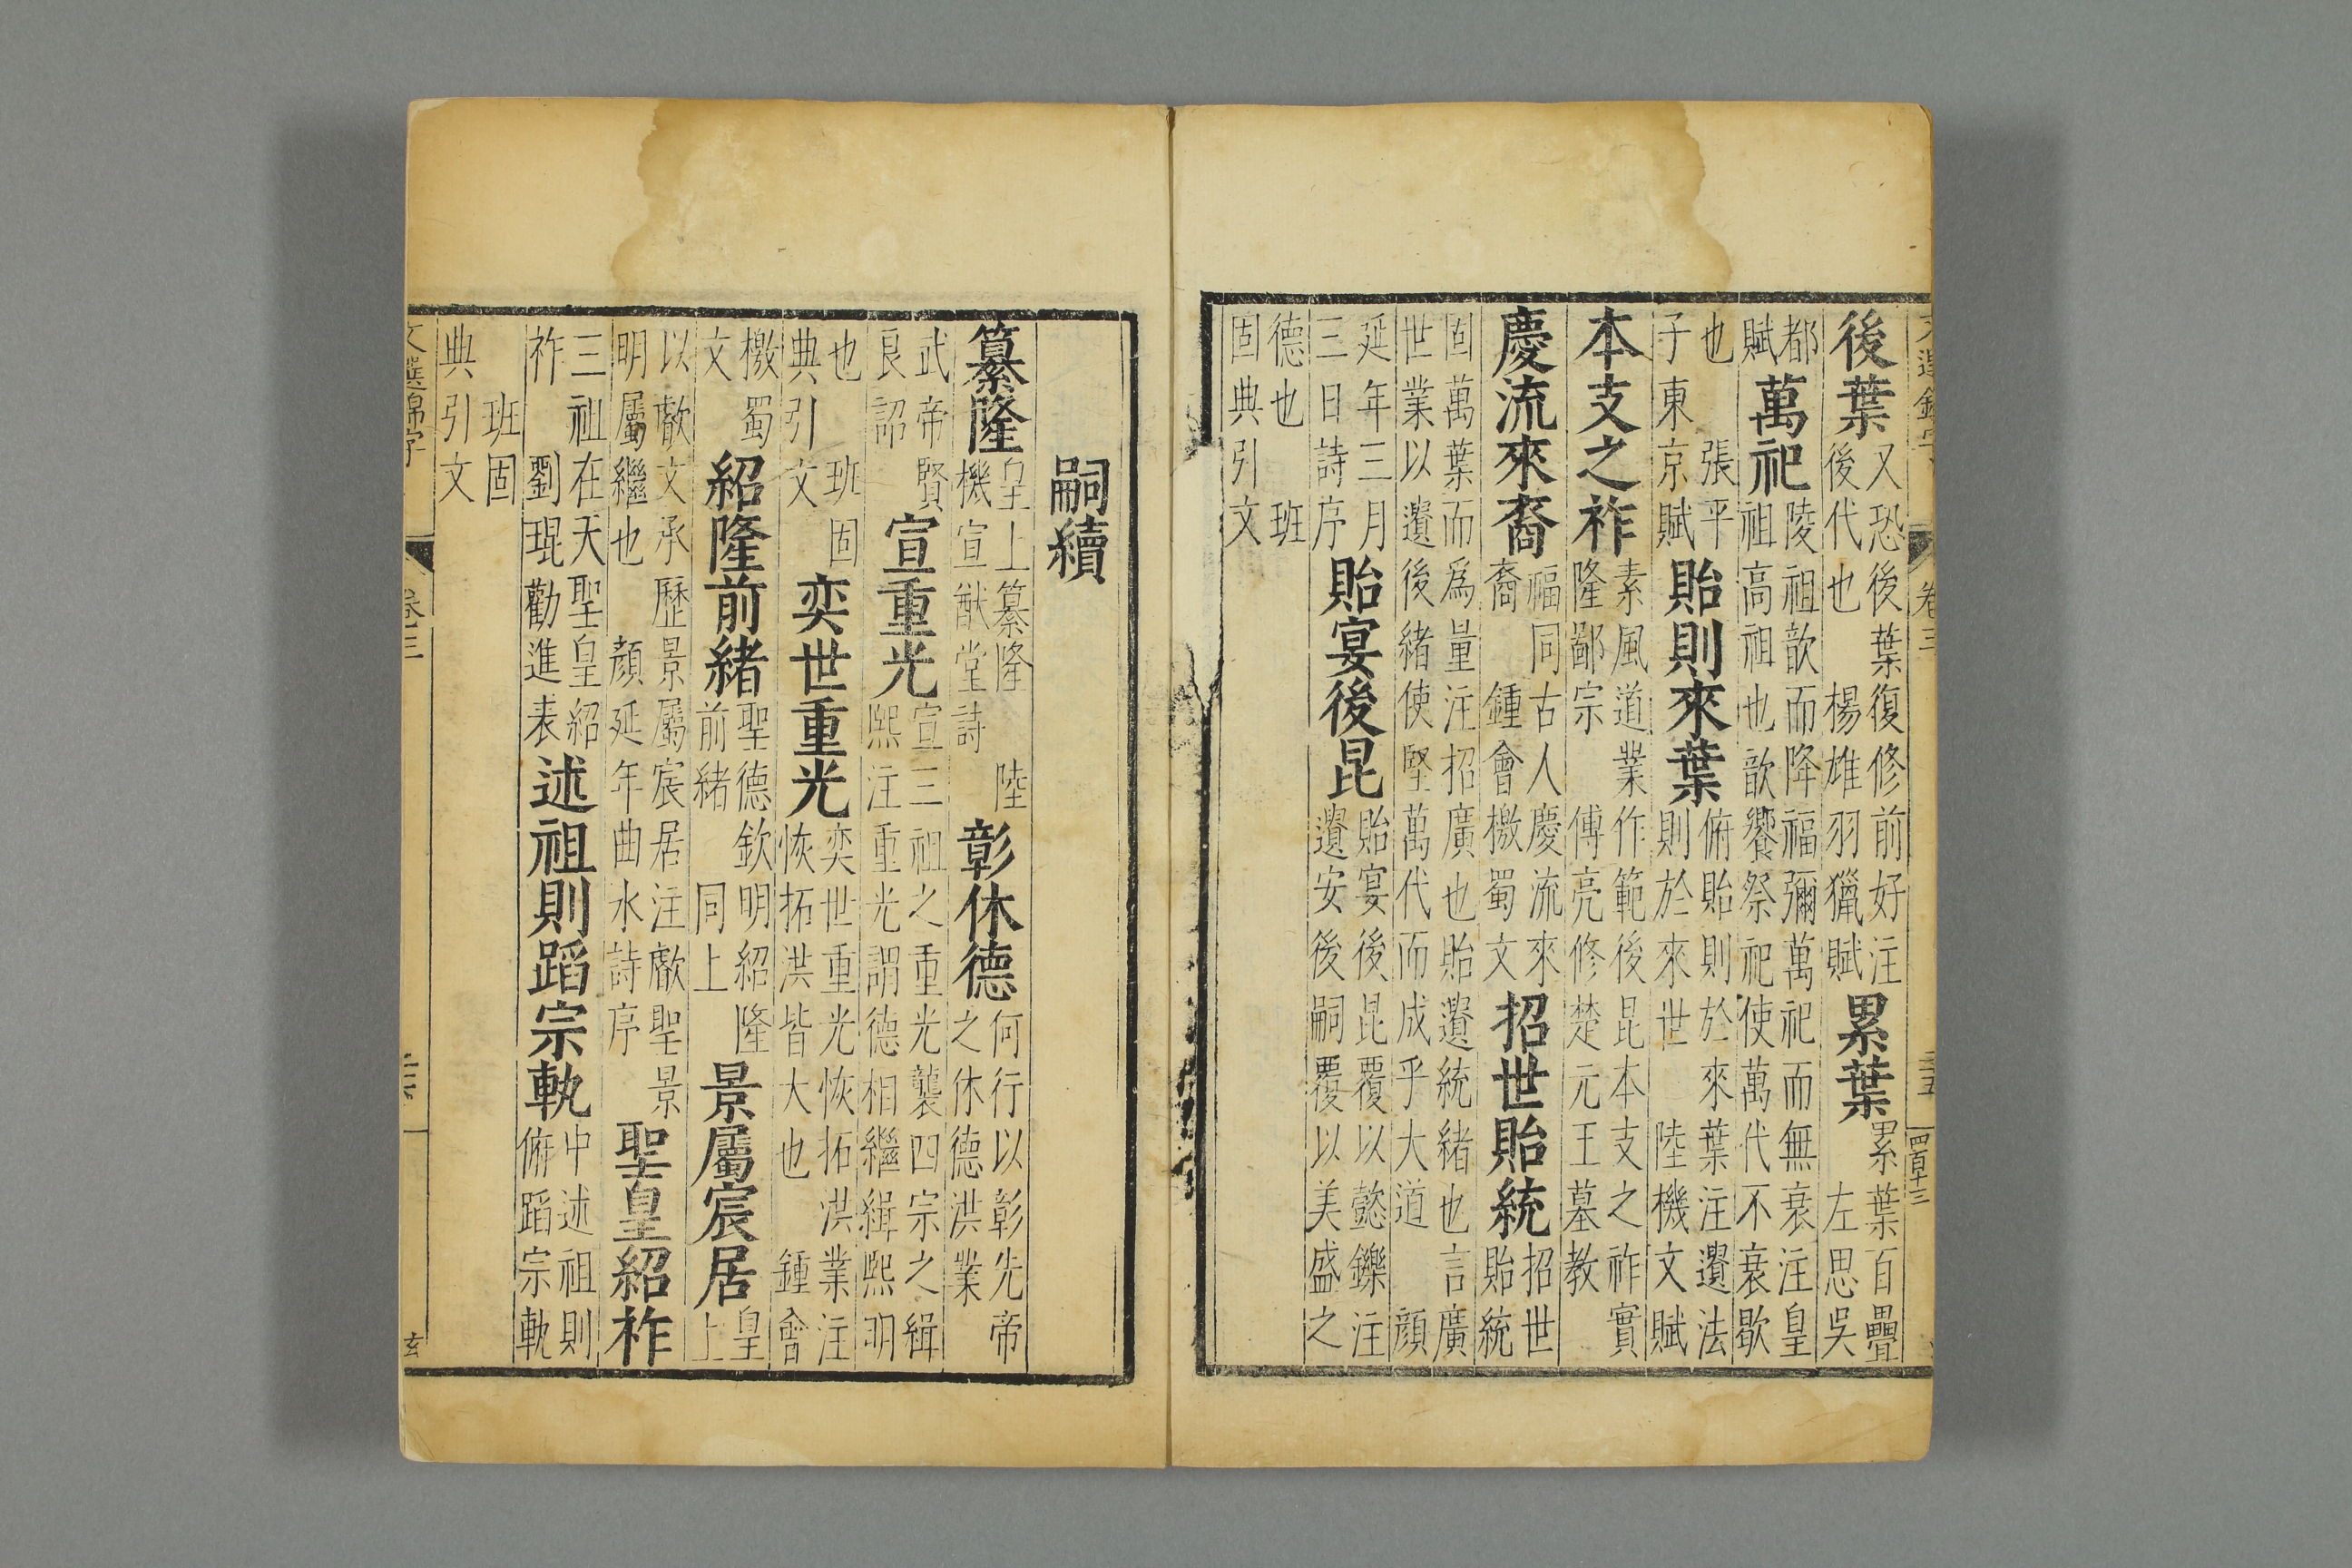 卷三
四百十三
後葉 又恐後葉復修前好注 後代也 楊雄羽獵賦 累葉 累葉百疊 左思吳
都 賦 萬祀 陵祖歆而降福彌萬祀而無衰注皇 祖高祖也歆饗祭祀使萬代不衰歇
也 張平 子東京賦 貽則來葉 俯貽則於來葉注遺法 則於來世 陸機文賦
本支之祚 素風道業作範後昆本支之祚實 隆鄙宗 傅亮修楚元王墓教
慶流來裔 福同古人慶流來 裔 鍾會檄蜀文 招世貽統 招世 貽統
固萬葉而爲量注招廣也貽遺統緒也言廣 世業以遺後緒使堅萬代而成乎大道 顔
延年三月 三日詩序 貽宴後昆 貽宴後昆覆以懿鑠注 遺安後嗣覆以美盛之
德也 班 固典引文
嗣續
纂隆 皇上纂隆 陸 機宣猷堂詩 彰休德 何行以彰先帝 之休德洪業
武帝賢 良詔 宣重光 宣三祖之重光襲四宗之緝 熙注重光謂德相繼緝熙明
也 班固 典引文 奕世重光 奕世重光恢拓洪業注 恢拓洪皆大也 鍾會
檄蜀 文 紹隆前緒 聖德欽明紹隆 前緒 同上 景屬宸居 皇 上
以叡文承歷景屬宸居注叡聖景 明屬繼也 顔延年曲水詩序 聖皇紹祚
三祖在天聖皇紹 祚 劉琨勸進表 述祖則蹈宗軌 中述祖則 俯蹈宗軌
班固 典引文
文選錦字 卷三